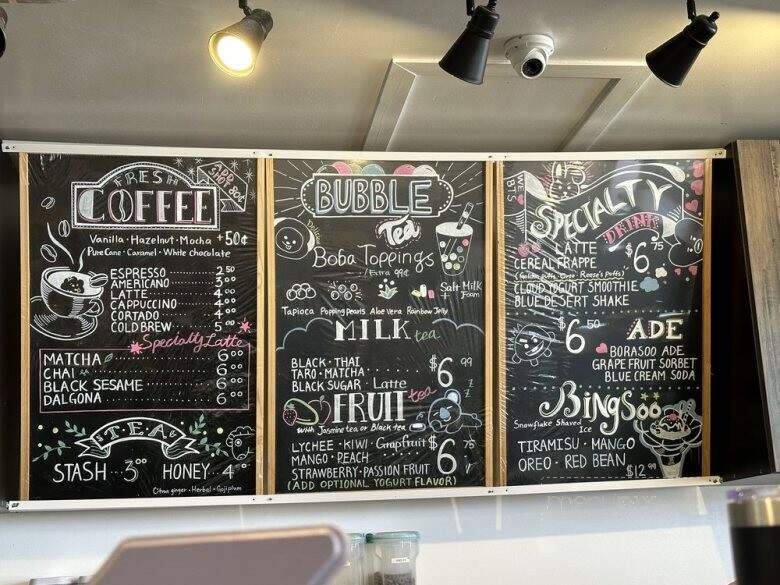 FRESH
COFFEE
Vanilla · Hazelnut · Mocha +50¢
Pure Cane · Caramel · White chocolate
ESPRESSO 2 50
AMERICANO 3 00
LATTE 4 00
CAPPUCCINO 4 00
CORTADO 4 00
COLD BREW 5 00
Specialty Latte
MATCHA 6 00
CHAI 6 00
BLACK SESAME 6 00
DALGONA 6 00
TEA
STASH 3 00 HONEY 4 00
Citron ginger · Herbal · Goji plum
BUBBLE
Tea
Boba Toppings
Extra 99¢
Salt Milk
Foam
Tapioca Popping Pearls Aloe Vera Rainbow Jelly
MILK tea
BLACK · THAI
TARO · MATCHA
BLACK SUGAR · Latte
$6 99
FRUIT tea
with Jasmine tea or Black tea
LYCHEE · KIWI · Grapefruit
MANGO · PEACH
STRAWBERRY · PASSION FRUIT
$6 75
(ADD OPTIONAL YOGURT FLAVOR)
BTS
SPECIALTY
DRINKS
LATTE
CEREAL FRAPPE
$6 75
CLOUD YOGURT SMOOTHIE
BLUE DESERT SHAKE
$6 50
ADE
BORASOO ADE
GRAPE FRUIT SORBET
BLUE CREAM SODA
BingSoo
Snowflake Shaved
Ice
TIRAMISU · MANGO
OREO · RED BEAN
$12 99